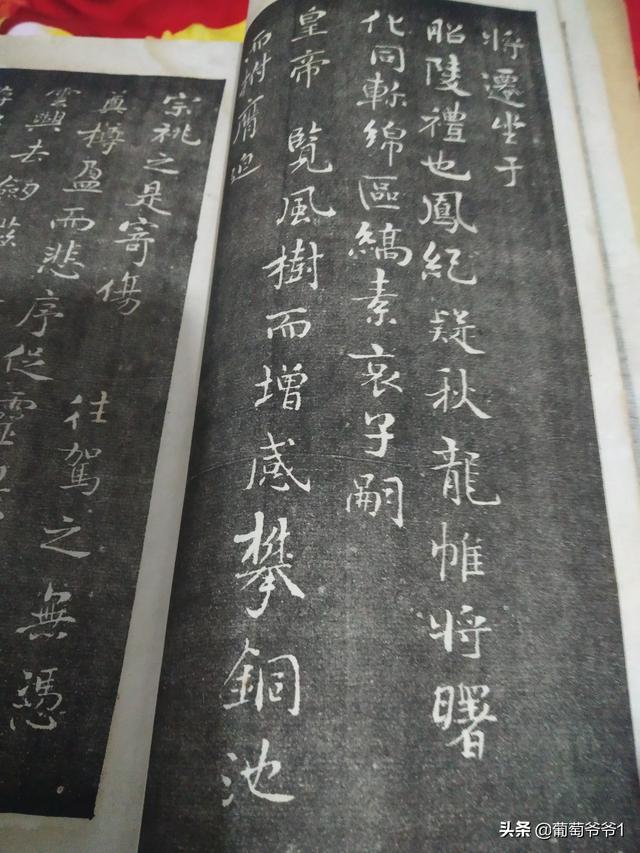 將遷坐于
昭陵禮也鳳紀疑秋龍帷將曙
化同軫綿區縞素哀子嗣
皇帝覽風樹而增感攀銅池
而拊膺迫
宗祧之是寄傷往駕之無憑
奠樽盈而悲序促靈
頭条 @葡萄爷爷1